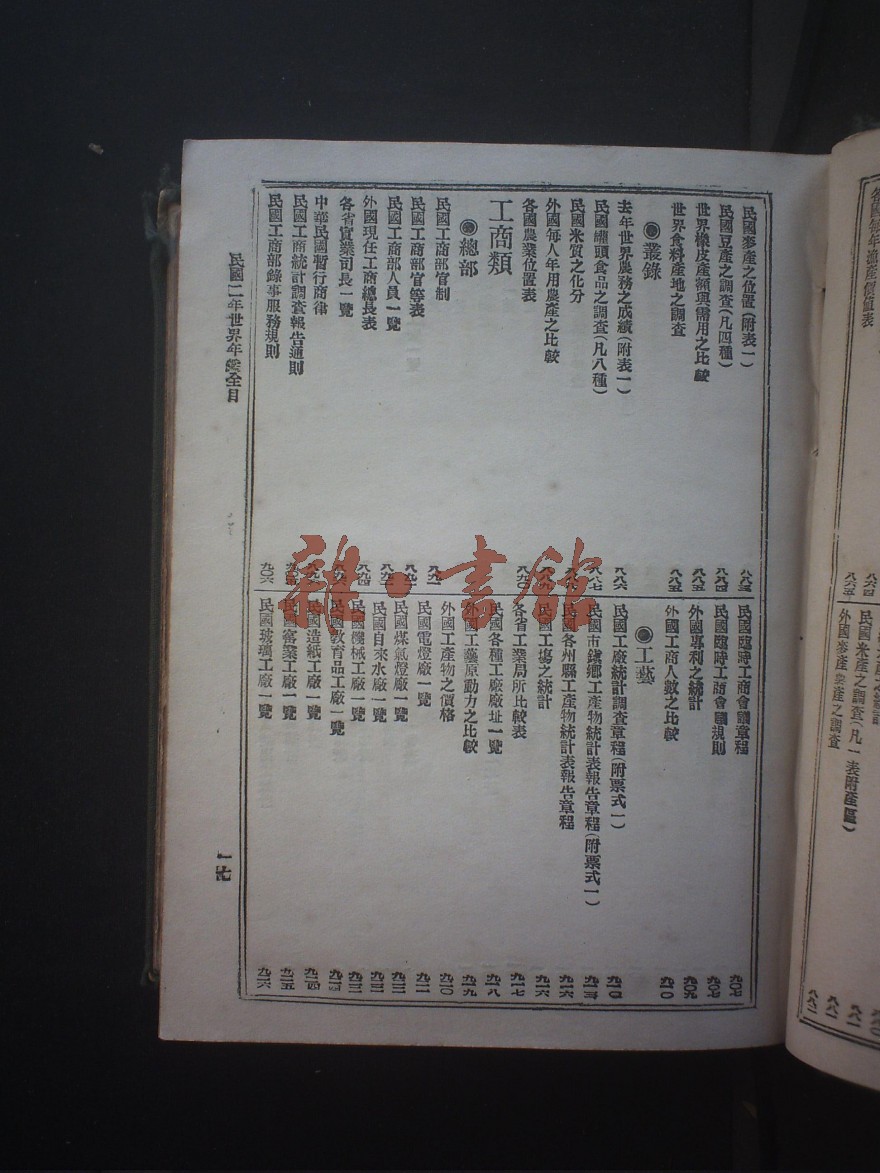 民國麥產之位置(附表一)
八八三
民國豆產之調查(凡四種)
八八四
世界橡皮產額與需用之比較
八八五
世界食料產地之調查
八八五
●叢錄
去年世界農務之成績(附表一)
八八六
民國罐頭食品之調查(凡八種)
八八七
民國米質之化分
外國每人年用農產之比較
各國農業位置表
八九〇
工商類
●總部
民國工商部官制
民國工商部官等表
民國工商部人員一覽
外國現任工商總長表
各省實業司長一覽
中華民國暫行商律
民國工商統計調查報告通則
民國工商部錄事服務規則
九〇六
民國臨時工商會議章程
九〇七
民國臨時工商會議規則
九〇七
外國專利之統計
九〇九
外國工商人數之比較
九一〇
●工藝
民國工廠統計調查章程(附票式一)
九一〇
民國市鎮鄉工產物統計表報告章程(附票式一)
九一三
民國各州縣工產物統計表報告章程
九一六
民國工場之統計
九一六
各省工業局所比較表
九一七
民國各種工廠廠址一覽
九一八
外國工藝原動力之比較
九一九
外國工產物之價格
九二〇
民國電燈廠一覽
九二一
民國煤氣燈廠一覽
九二二
民國自來水廠一覽
九二二
民國機械工廠一覽
九二三
民國教育品工廠一覽
九二四
民國造紙工廠一覽
九二四
民國窰業工廠一覽
九二五
民國玻璃工廠一覽
九二六
民國二年世界年鑑全目
一七
各國每年漁產價值表
八六四
八六五
民國米產之調查(凡一表附產區)
八八一
外國麥產美產之調查
八八二
雜·書館